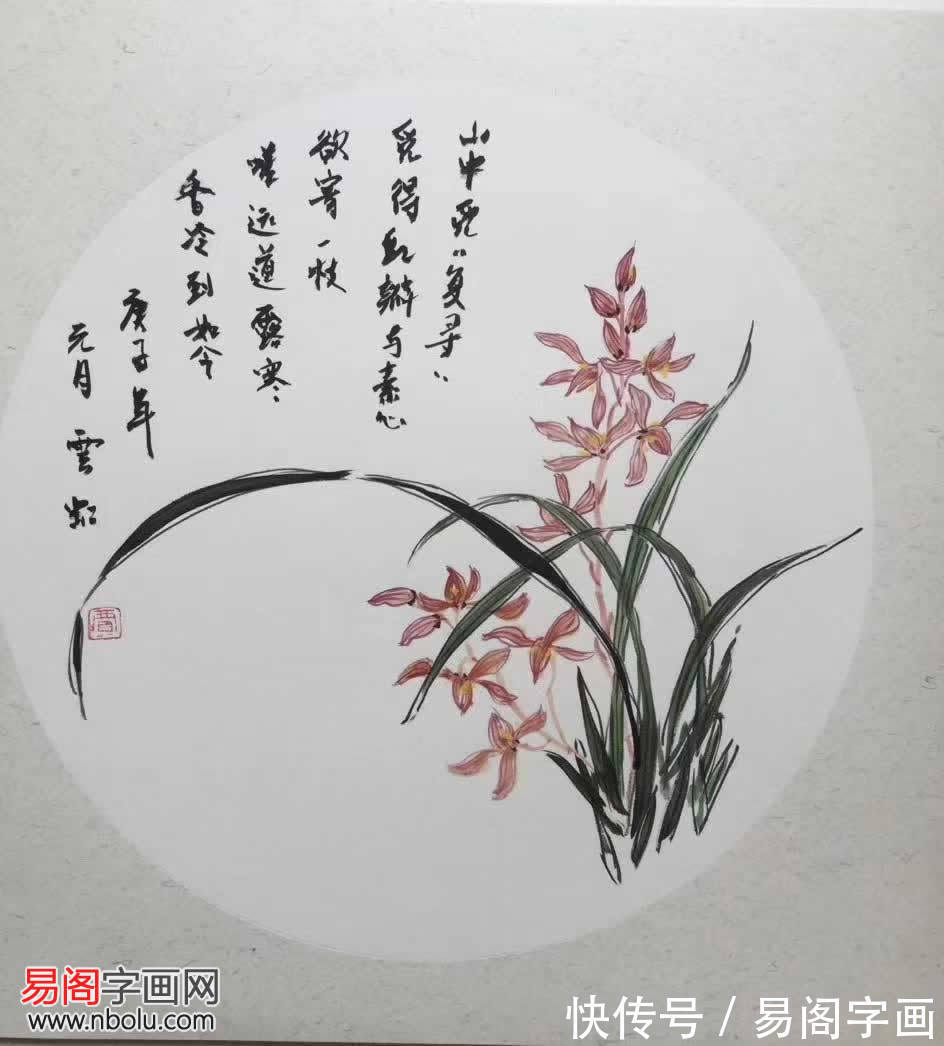 山中觅〻复寻〻
觅得红瓣与素心
欲寄一枝
嗟远道露寒
香冷到如今
庚子年
元月 雲
易阁字画网
www.nbolu.com
快传号 / 易阁字画